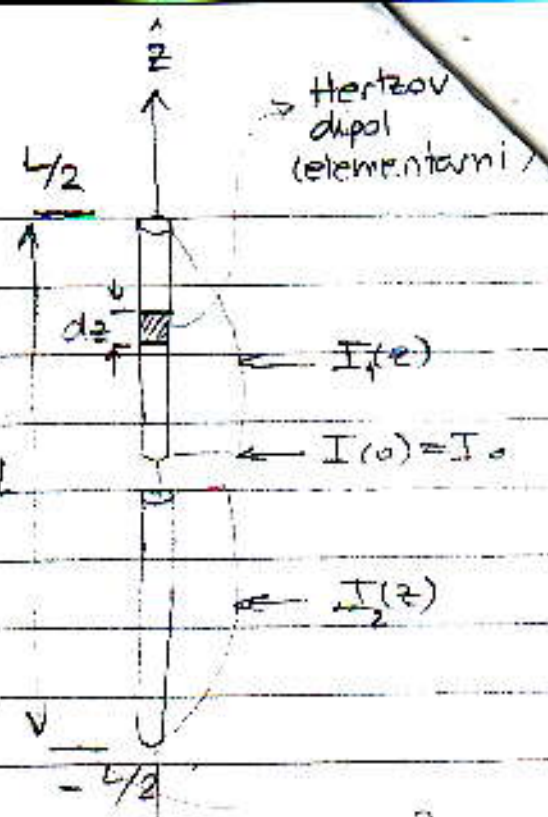 ẑ
Hertzov
dipol
(elementarni)
L/2
dz
I₁(z)
I(0)=I₀
I₂(z)
-L/2